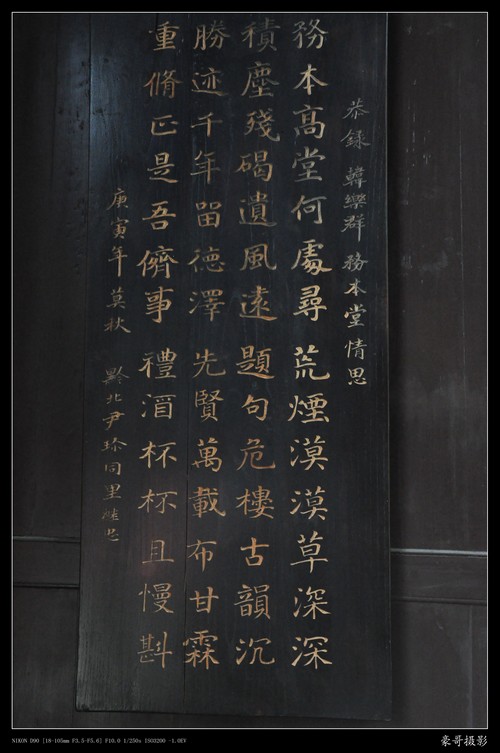 恭録 韓樂群 務本堂情思
務本高堂何處尋 荒煙漠漠草深深
積塵殘碣遺風遠 題句危樓古韻沉
勝迹千年留德澤 先賢萬載布甘霖
重脩正是吾儕事 禮酒杯杯且慢斟
庚寅年 莫秋 黔北尹珍同里
NIKON D90 [18-105mm F3.5-F5.6] F10.0 1/250s ISO3200 -1.0EV
豪哥摄影